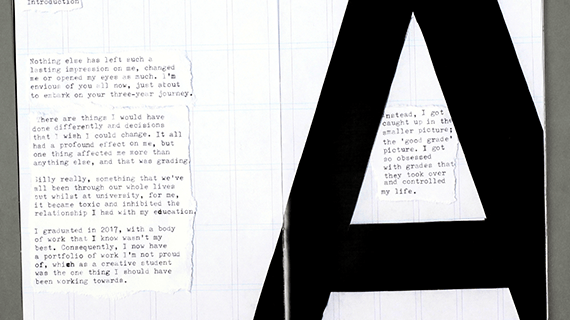 Introduction
Nothing else has left such a
lasting impression on me, changed
me or opened my eyes as much. I'm
envious of you all now, just about
to embark on your three-year journey.
There are things I would have
done differently and decisions
that I wish I could change. It all
had a profound effect on me, but
one thing affected me more than
anything else, and that was grading.
Silly really, something that we've
all been through our whole lives
but whilst at university, for me,
it became toxic and inhibited the
relationship I had with my education.
I graduated in 2017, with a body
of work that I know wasn't my
best. Consequently, I now have
a portfolio of work I'm not proud
of, which as a creative student
was the one thing I should have
been working towards.
A
Instead, I got
caught up in the
smaller picture;
the 'good grade'
picture. I got
so obsessed
with grades that
they took over
and controlled
my life.